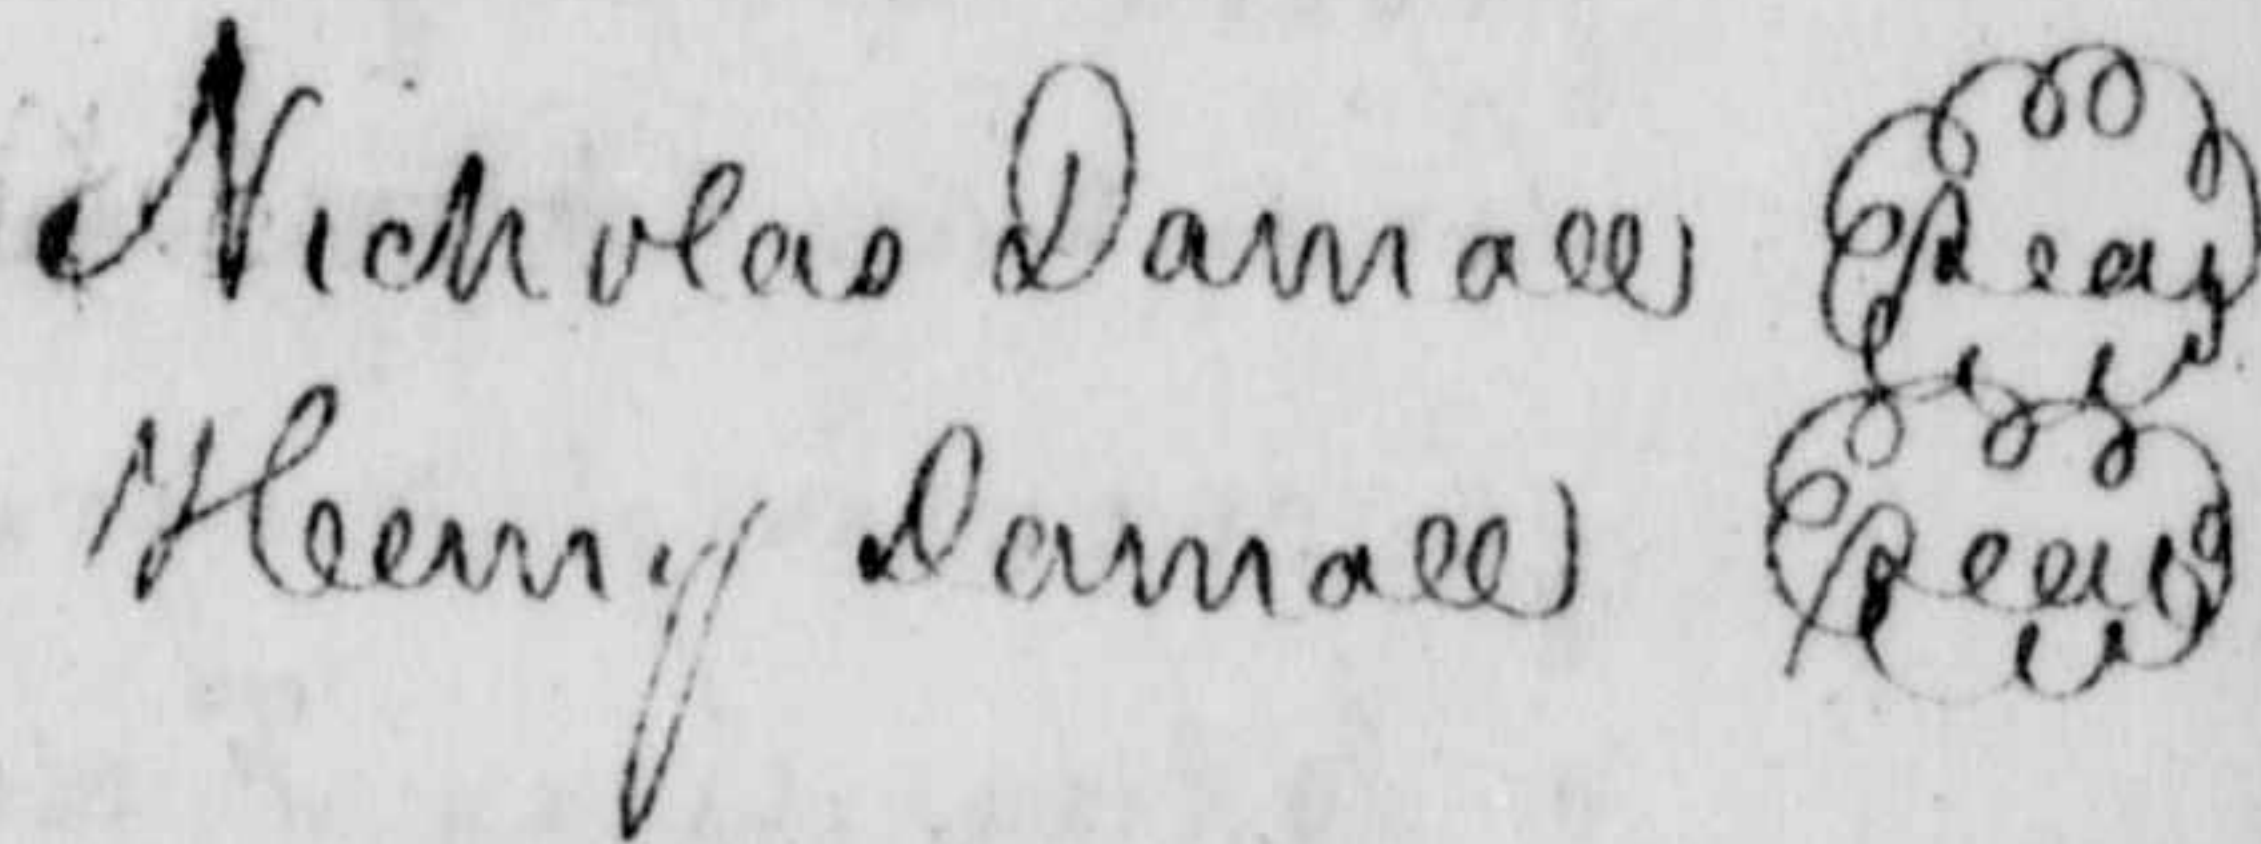 Nicholas Darnall Seal
Henry Darnall Seal